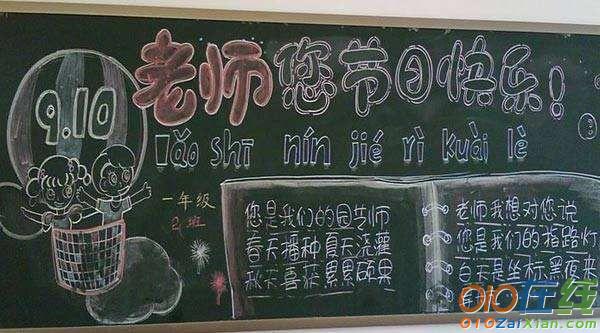 9.10
老师您节日快乐!
lǎo shī nín jié rì kuài lè
一年级
2班
您是我们的园艺师
春天播种夏天浇灌
秋天喜获累累硕果
老师我想对您说
您是我们的指路灯
白天是坐标黑夜来
010在线
010ZaiXian.com